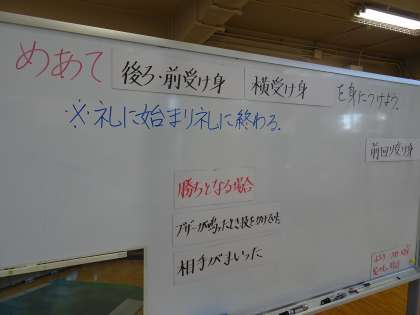 めあて 後ろ・前受け身 横受け身 を身につけよう。
※礼に始まり礼に終わる。
前回り受け身
勝ちとなる場合
ブザーが鳴ったとき技をかけた
相手がまいった